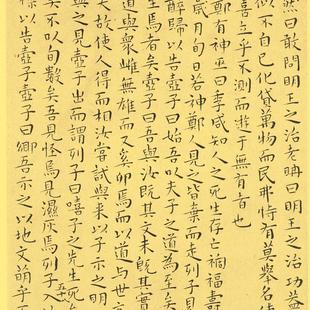 然曰敢問明王之治老聃曰明王之治功蓋
似不自己化貸萬物而民弗恃有莫舉名使
喜立乎不測而遊于無有者也
鄭有神巫曰季咸知人之死生存亡禍福壽
歲月旬日若神鄭人見之皆棄而走列子見
醉歸以告壺子曰始吾以夫子之道為至矣
至焉者矣壺子曰吾與汝既其文未既其實
道與衆雌無雄而又奚卵焉而以道與世亢
夫故使人得而相汝嘗試與來以予示之明
與之見壺子出而謂列子曰嘻子之先生死
矣不以旬數矣吾見怪焉見濕灰焉列子入
以告壺子壺子曰鄉吾示之以地文萌乎不